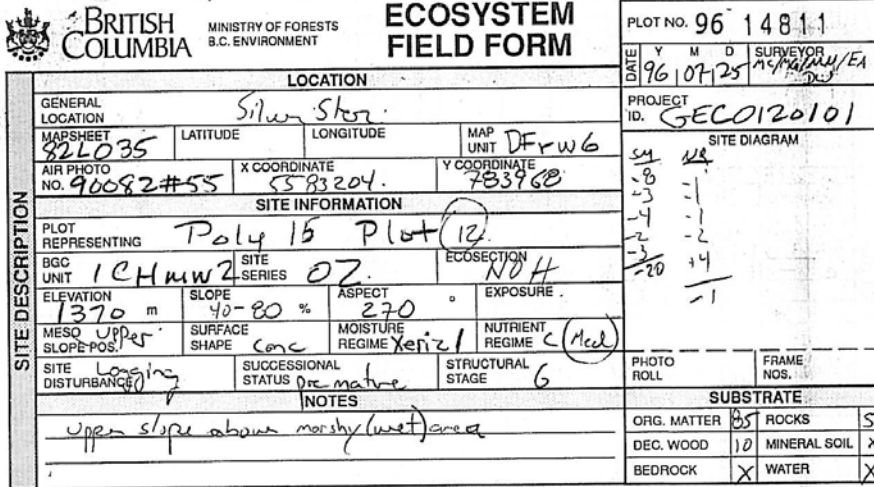 BRITISH COLUMBIA
MINISTRY OF FORESTS
B.C. ENVIRONMENT
ECOSYSTEM FIELD FORM
PLOT NO. 96 14811
DATE Y M D 96 07 25 SURVEYOR
PROJECT ID. GECO120101
LOCATION
GENERAL LOCATION Silver Star
MAPSHEET 82L035 LATITUDE LONGITUDE MAP UNIT DFrw6
AIR PHOTO NO. 90082#55 X COORDINATE 5583204. Y COORDINATE 783968
SITE DESCRIPTION
SITE INFORMATION
PLOT REPRESENTING Poly 15 Plot 12
BGC UNIT ICHmw2 SITE SERIES 02. ECOSECTION NOH
ELEVATION 1370 m SLOPE 40-80 % ASPECT 270 ° EXPOSURE
MESO SLOPE POS. Upper SURFACE SHAPE Conc MOISTURE REGIME Xeric 1 NUTRIENT REGIME C (Med)
SITE DISTURBANCE Logging SUCCESSIONAL STATUS STRUCTURAL STAGE 6
NOTES
Upper slope above marshy (wet) area
SITE DIAGRAM
SM NR
-8 -1
-3 -1
-4 -2
-2 +4
-3 -1
-20
PHOTO ROLL FRAME NOS.
SUBSTRATE
ORG. MATTER 85 ROCKS 5
DEC. WOOD 10 MINERAL SOIL X
BEDROCK X WATER X